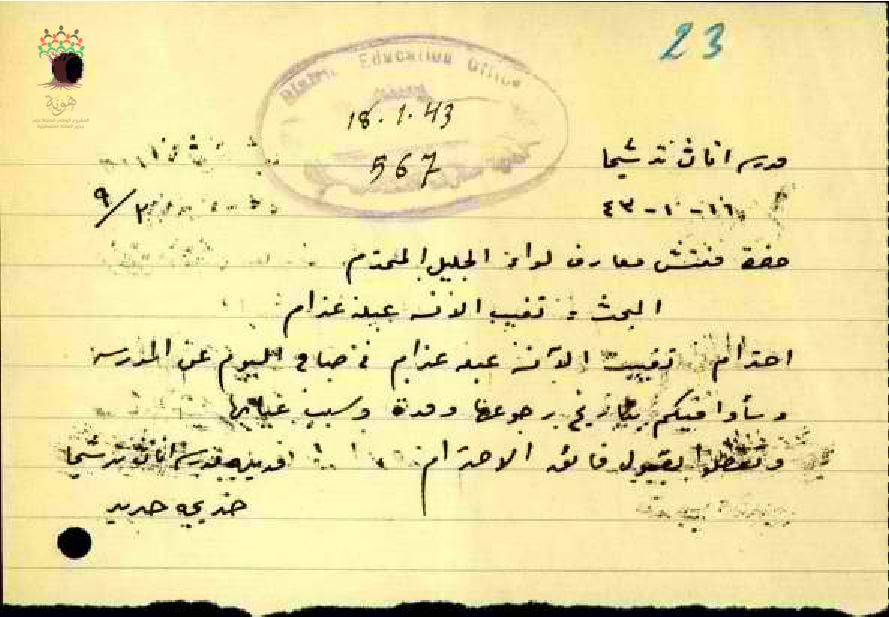 23
هوية
District Education Office
18.1.43
567
مدرسة اناث ترشيحا
٩/٢
١٦-١-٤٣
حضرة مفتش معارف لواء الجليل المحترم
البحث : تغيب الآنسه عبله عزام
احترام تغيبت الآنسه عبله عزام في صباح اليوم عن المدرسة
وسأوافيكم بتاريخ رجوعها ومدة وسبب غيابها
وتفضلوا بقبول فائق الاحترام
مدرسة اناث ترشيحا
خديجه حديد